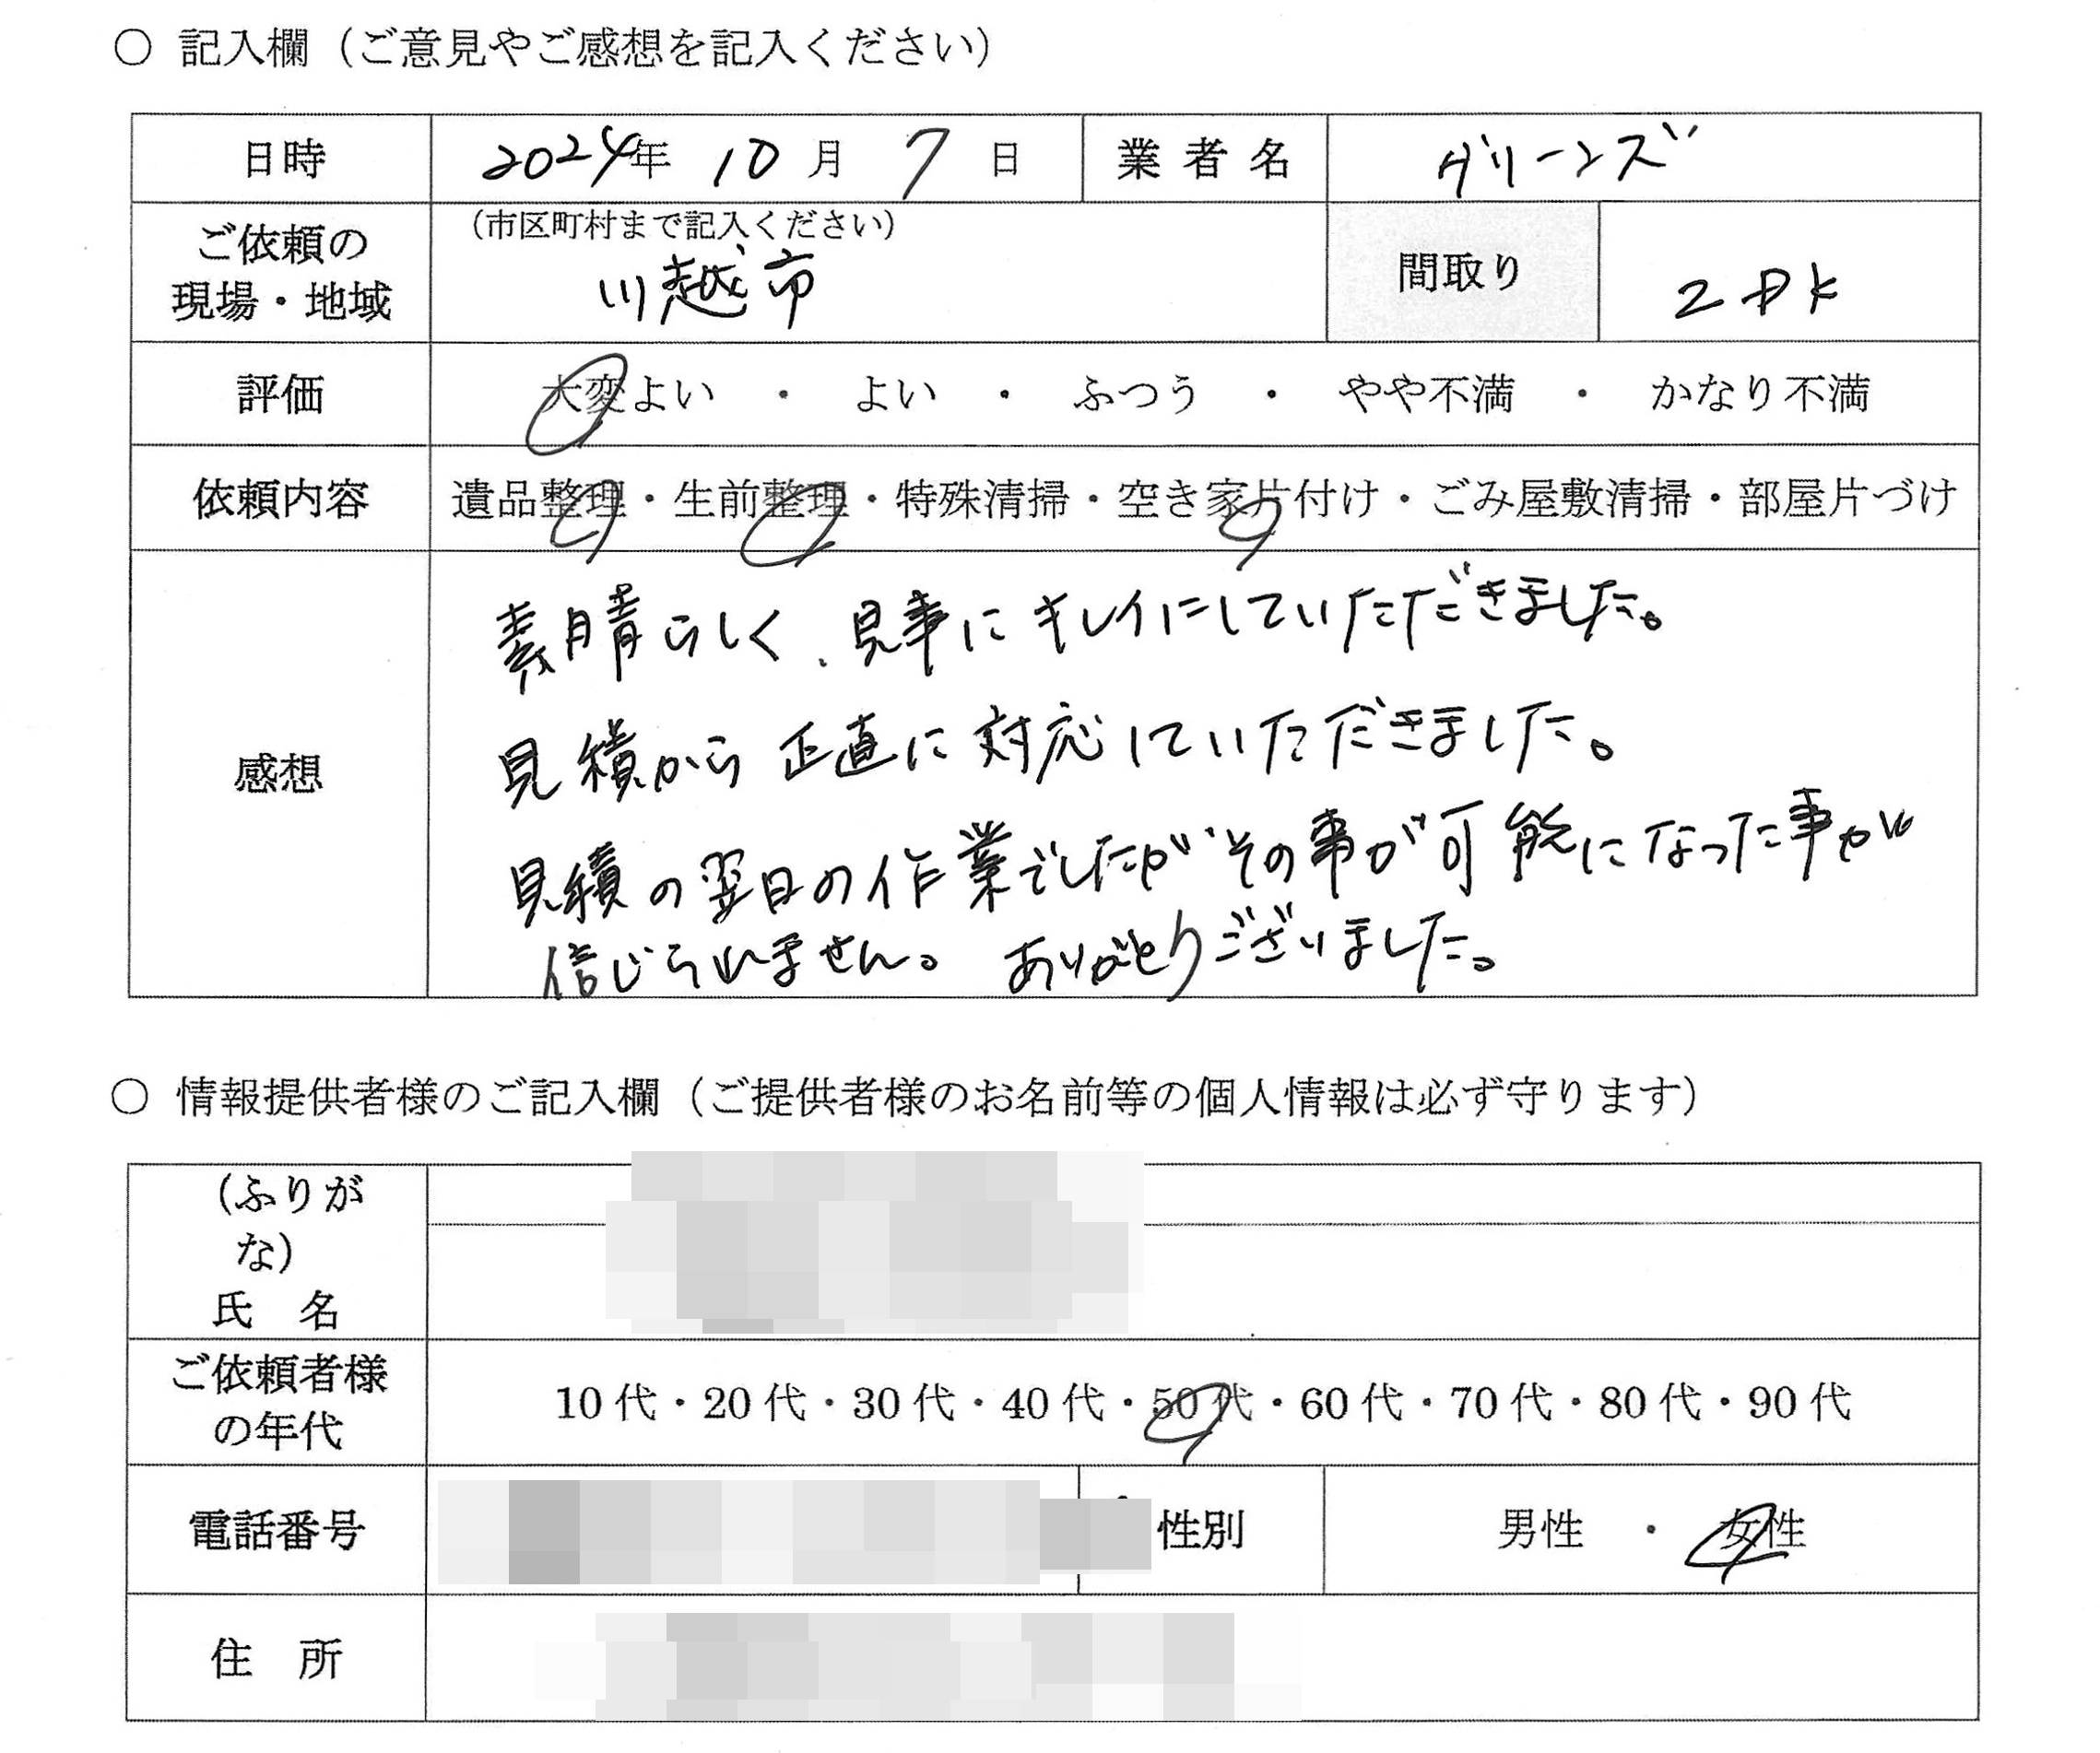 ○ 記入欄（ご意見やご感想を記入ください）
日時 2024年 10月 7日 業者名 グリーンズ
ご依頼の現場・地域 （市区町村まで記入ください） 間取り
川越市 2DK
評価 大変よい ・ よい ・ ふつう ・ やや不満 ・ かなり不満
依頼内容 遺品整理・生前整理・特殊清掃・空き家片付け・ごみ屋敷清掃・部屋片づけ
感想
素晴らしく、見事にキレイにしていただきました。
見積から正直に対応していただきました。
見積の翌日の作業でしたが、その事が可能になった事が
信じられません。ありがとうございました。
○ 情報提供者様のご記入欄（ご提供者様のお名前等の個人情報は必ず守ります）
（ふりが
な）
氏 名
ご依頼者様
の年代
10代・20代・30代・40代・50代・60代・70代・80代・90代
電話番号 性別 男性 ・ 女性
住 所